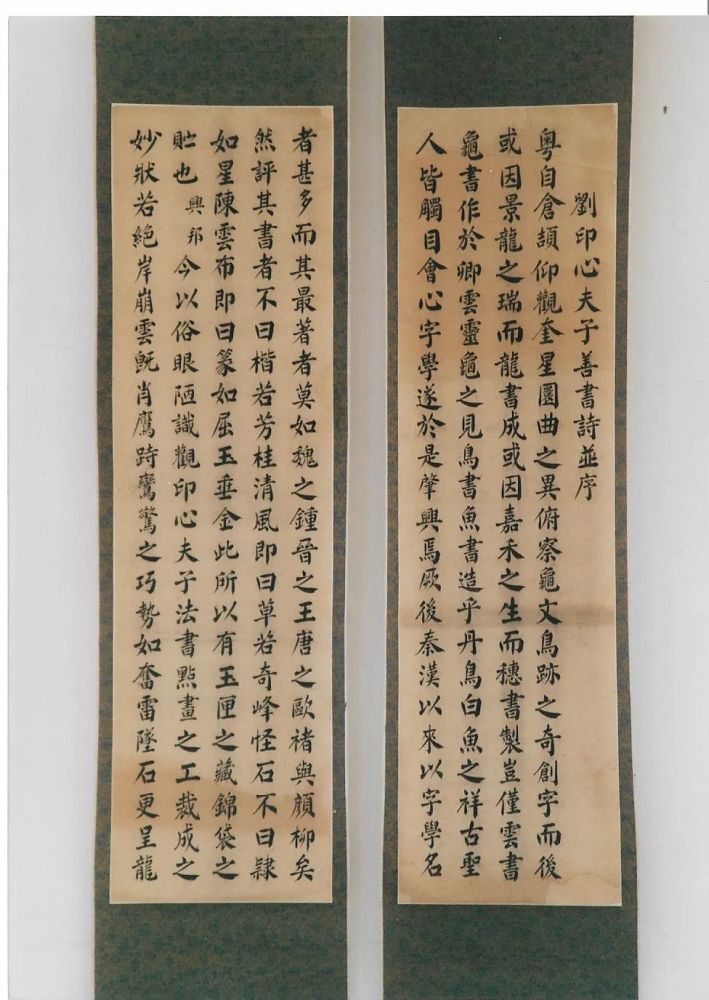 劉印心夫子善書詩並序
粤自倉頡仰觀奎星圜曲之異俯察龜文鳥跡之奇創字而後
或因景龍之瑞而龍書成或因嘉禾之生而穗書製豈僅雲書
龜書作於卿雲靈龜之見鳥書魚書造乎丹鳥白魚之祥古聖
人皆觸目會心字學遂於是肇興焉厥後秦漢以來以字學名
者甚多而其最著者莫如魏之鍾晋之王唐之歐褚與顔柳矣
然評其書者不曰楷若芳桂清風即曰草若奇峰怪石不曰隸
如星陳雲布即曰篆如屈玉垂金此所以有玉匣之藏錦袋之
貯也興邦今以俗眼陋識觀印心夫子法書點畫之工裁成之
妙狀若絶岸崩雲旣肖鷹跱鸞驚之巧勢如奮雷墜石更呈龍